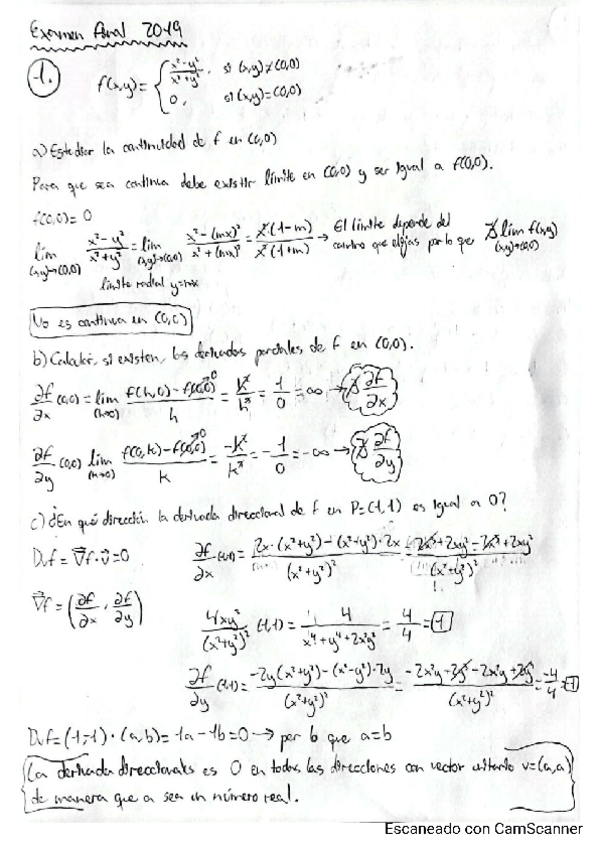 Examen Final 2019
1. f(x,y) = { x²-y² / x²+y², si (x,y)≠(0,0)
0, si (x,y)=(0,0)
a) Estudiar la continuidad de f en (0,0)
Para que sea continua debe existir límite en (0,0) y ser igual a f(0,0).
f(0,0)= 0
lim (x,y)→(0,0) x²-y² / x²+y² = lim (x,y)→(0,0) x²-(mx)² / x²+(mx)² = x²(1-m) / x²(1+m) → El límite depende del camino que elijas por lo que ∄ lim f(x,y) (x,y)→(0,0)
límite radial y=mx
No es continua en (0,0)
b) Calcular, si existen, las derivadas parciales de f en (0,0).
∂f/∂x (0,0) = lim (h→0) f(h,0)-f(0,0)→0 / h = h²/h³ = 1/0 = ∞ → ∄ ∂f/∂x
∂f/∂y (0,0) lim (k→0) f(0,k)-f(0,0)→0 / k = -k²/k³ = -1/0 = -∞ → ∄ ∂f/∂y
c) ¿En qué dirección la derivada direccional de f en P=(1,1) es igual a 0?
Duf = ∇f·v = 0 ∂f/∂x (1,1) = 2x·(x²+y²)-(x²+y²)·2x / (x²+y²)² = 2x³+2xy²-2x³+2xy² / (x²+y²)²
∇f = (∂f/∂x, ∂f/∂y) 4xy² / (x²+y²)² (1,1) = 4 / x⁴+y⁴+2x²y² = 4/4 = 1
∂f/∂y (1,1) = -2y(x²+y²)-(x²-y²)·2y / (x²+y²)² = -2x²y-2y³-2x²y+2y³ / (x²+y²)² = -4/4 = -1
Duf = (1,-1)·(a,b) = 1a-1b=0 → por lo que a=b
La derivada direccionales es 0 en todas las direcciones con vector unitario v=(a,a)
de manera que a sea un número real.
Escaneado con CamScanner